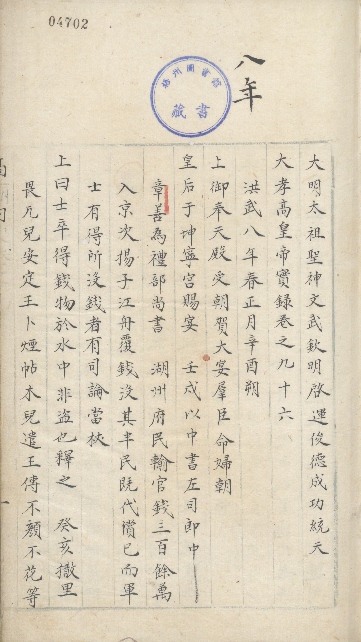 04702
八年
揚州圖書館
藏書
大明太祖聖神文武欽明啓運俊德成功統天
大孝高皇帝實錄卷之九十六
洪武八年春正月辛酉朔
上御奉天殿受朝賀大宴羣臣命婦朝
皇后于坤寧宮賜宴 壬戌以中書左司郎中
章善為禮部尚書 湖州府民輸官錢三百餘萬
入京次揚子江舟覆錢沒其半民既代償已而軍
士有得所沒錢者有司論當杖
上曰士卒得錢物於水中非盜也釋之 癸亥撒里
畏兀兒安定王卜煙帖木兒遣王傅不顏不花等